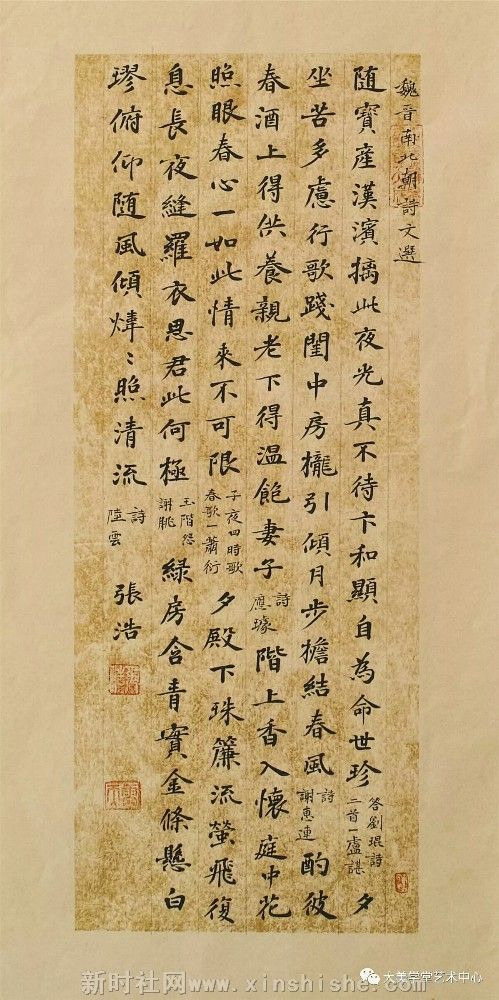 魏晋南北朝詩文選
随寶産漢濱摛此夜光真不待卞和顯自為命世珍 答劉琨詩二首一盧諶 夕
坐苦多慮行歌踐閨中房櫳引傾月步擔結春風 詩謝惠連 酌彼
春酒上得供養親老下得温飽妻子 詩應璩 階上香入懷庭中花
照眼春心一如此情来不可限 子夜四時歌春歌一蕭衍 夕殿下珠簾流螢飛復
息長夜縫羅衣思君此何極 玉階怨謝朓 緑房含青實金條懸白
璆俯仰随風傾煒〻照清流 詩陸雲 張浩
大美学堂艺术中心
新时社网www.xinshishe.com